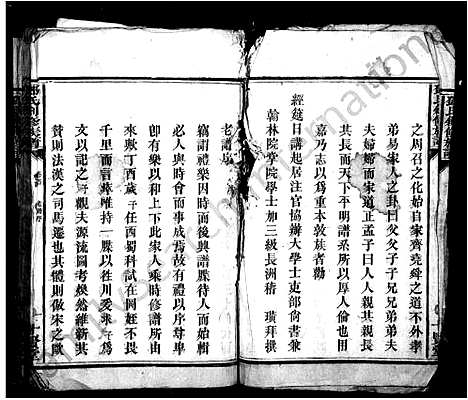 之周召之化始自家齊堯舜之道不外孝
弟易家人之卦曰父父子子兄兄弟弟夫
夫婦婦而家道正孟子曰人人親其親長
其長而天下平明譜系所以厚人倫也用
嘉乃志以爲重本敦族者勸
經筵日講起居注官協辦大學士吏部尚書兼
翰林院掌院學士加三級長洲嵇 璜拜撰
老譜序
竊謂禮樂因時而後興譜牒待人而始輯
必人與時會而事成焉故有禮以序尊卑
卽有樂以和上下此家人乘時修譜所由
來歟丁酉歲予任西蜀科試在岡赶不畏
千里而言旋唯持一牒以牲川愛來予爲
文以記之予觀夫源流圖考煥然維新其
贊則法漢之司馬遷也其體則倣宋之歐